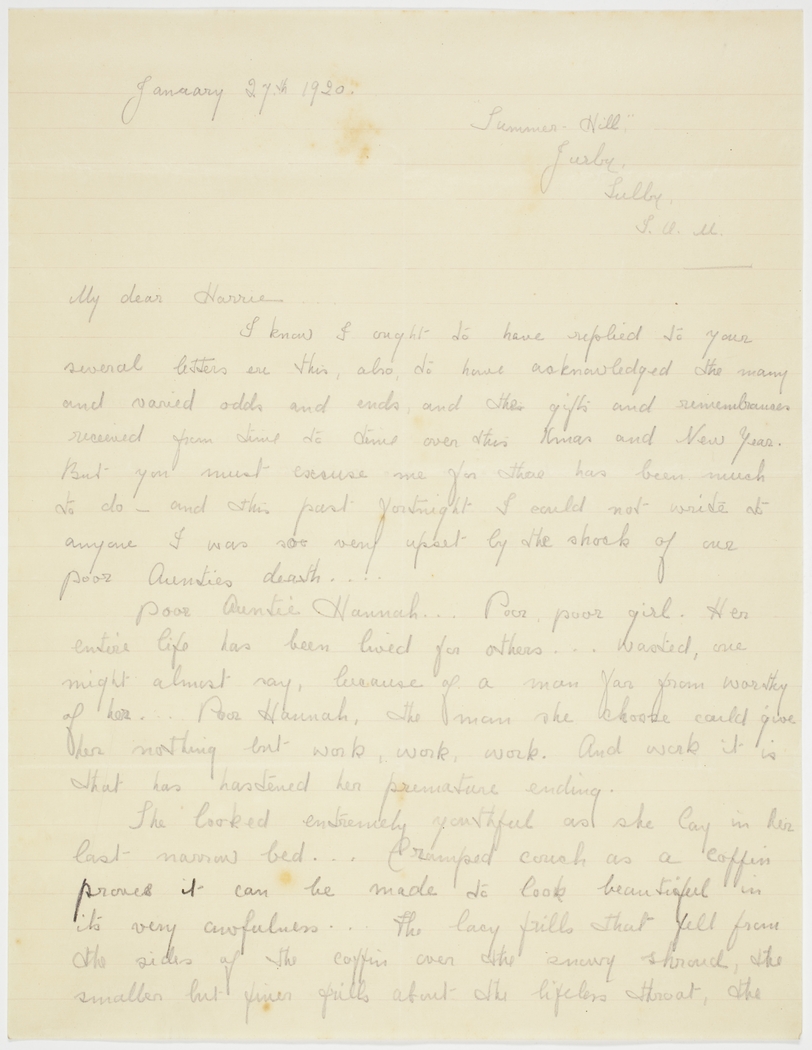 January 27th 1920.
"Summer-Hill"
Jurby,
Sulby,
I. O. M.
My dear Harrie
I know I ought to have replied to your
several letters ere this, also, to have acknowledged the many
and varied odds and ends, and the gifts and remembrances
received from time to time over this Xmas and New Year.
But you must excuse me for there has been much
to do - and this past fortnight I could not write to
anyone I was soo very upset by the shock of our
poor Aunties death....
Poor Auntie Hannah... Poor, poor girl. Her
entire life has been lived for others... wasted, one
might almost say, because of a man far from worthy
of her... Poor Hannah, the man she choose could give
her nothing but work, work, work. And work it is
that has hastened her premature ending.
She looked extremely youthful as she lay in her
last narrow bed... Cramped couch as a coffin
proves it can be made to look beautiful in
its very awfulness... The lacy frills that fell from
the sides of the coffin over the snowy shroud, the
smaller but finer frills about the lifeless throat, the